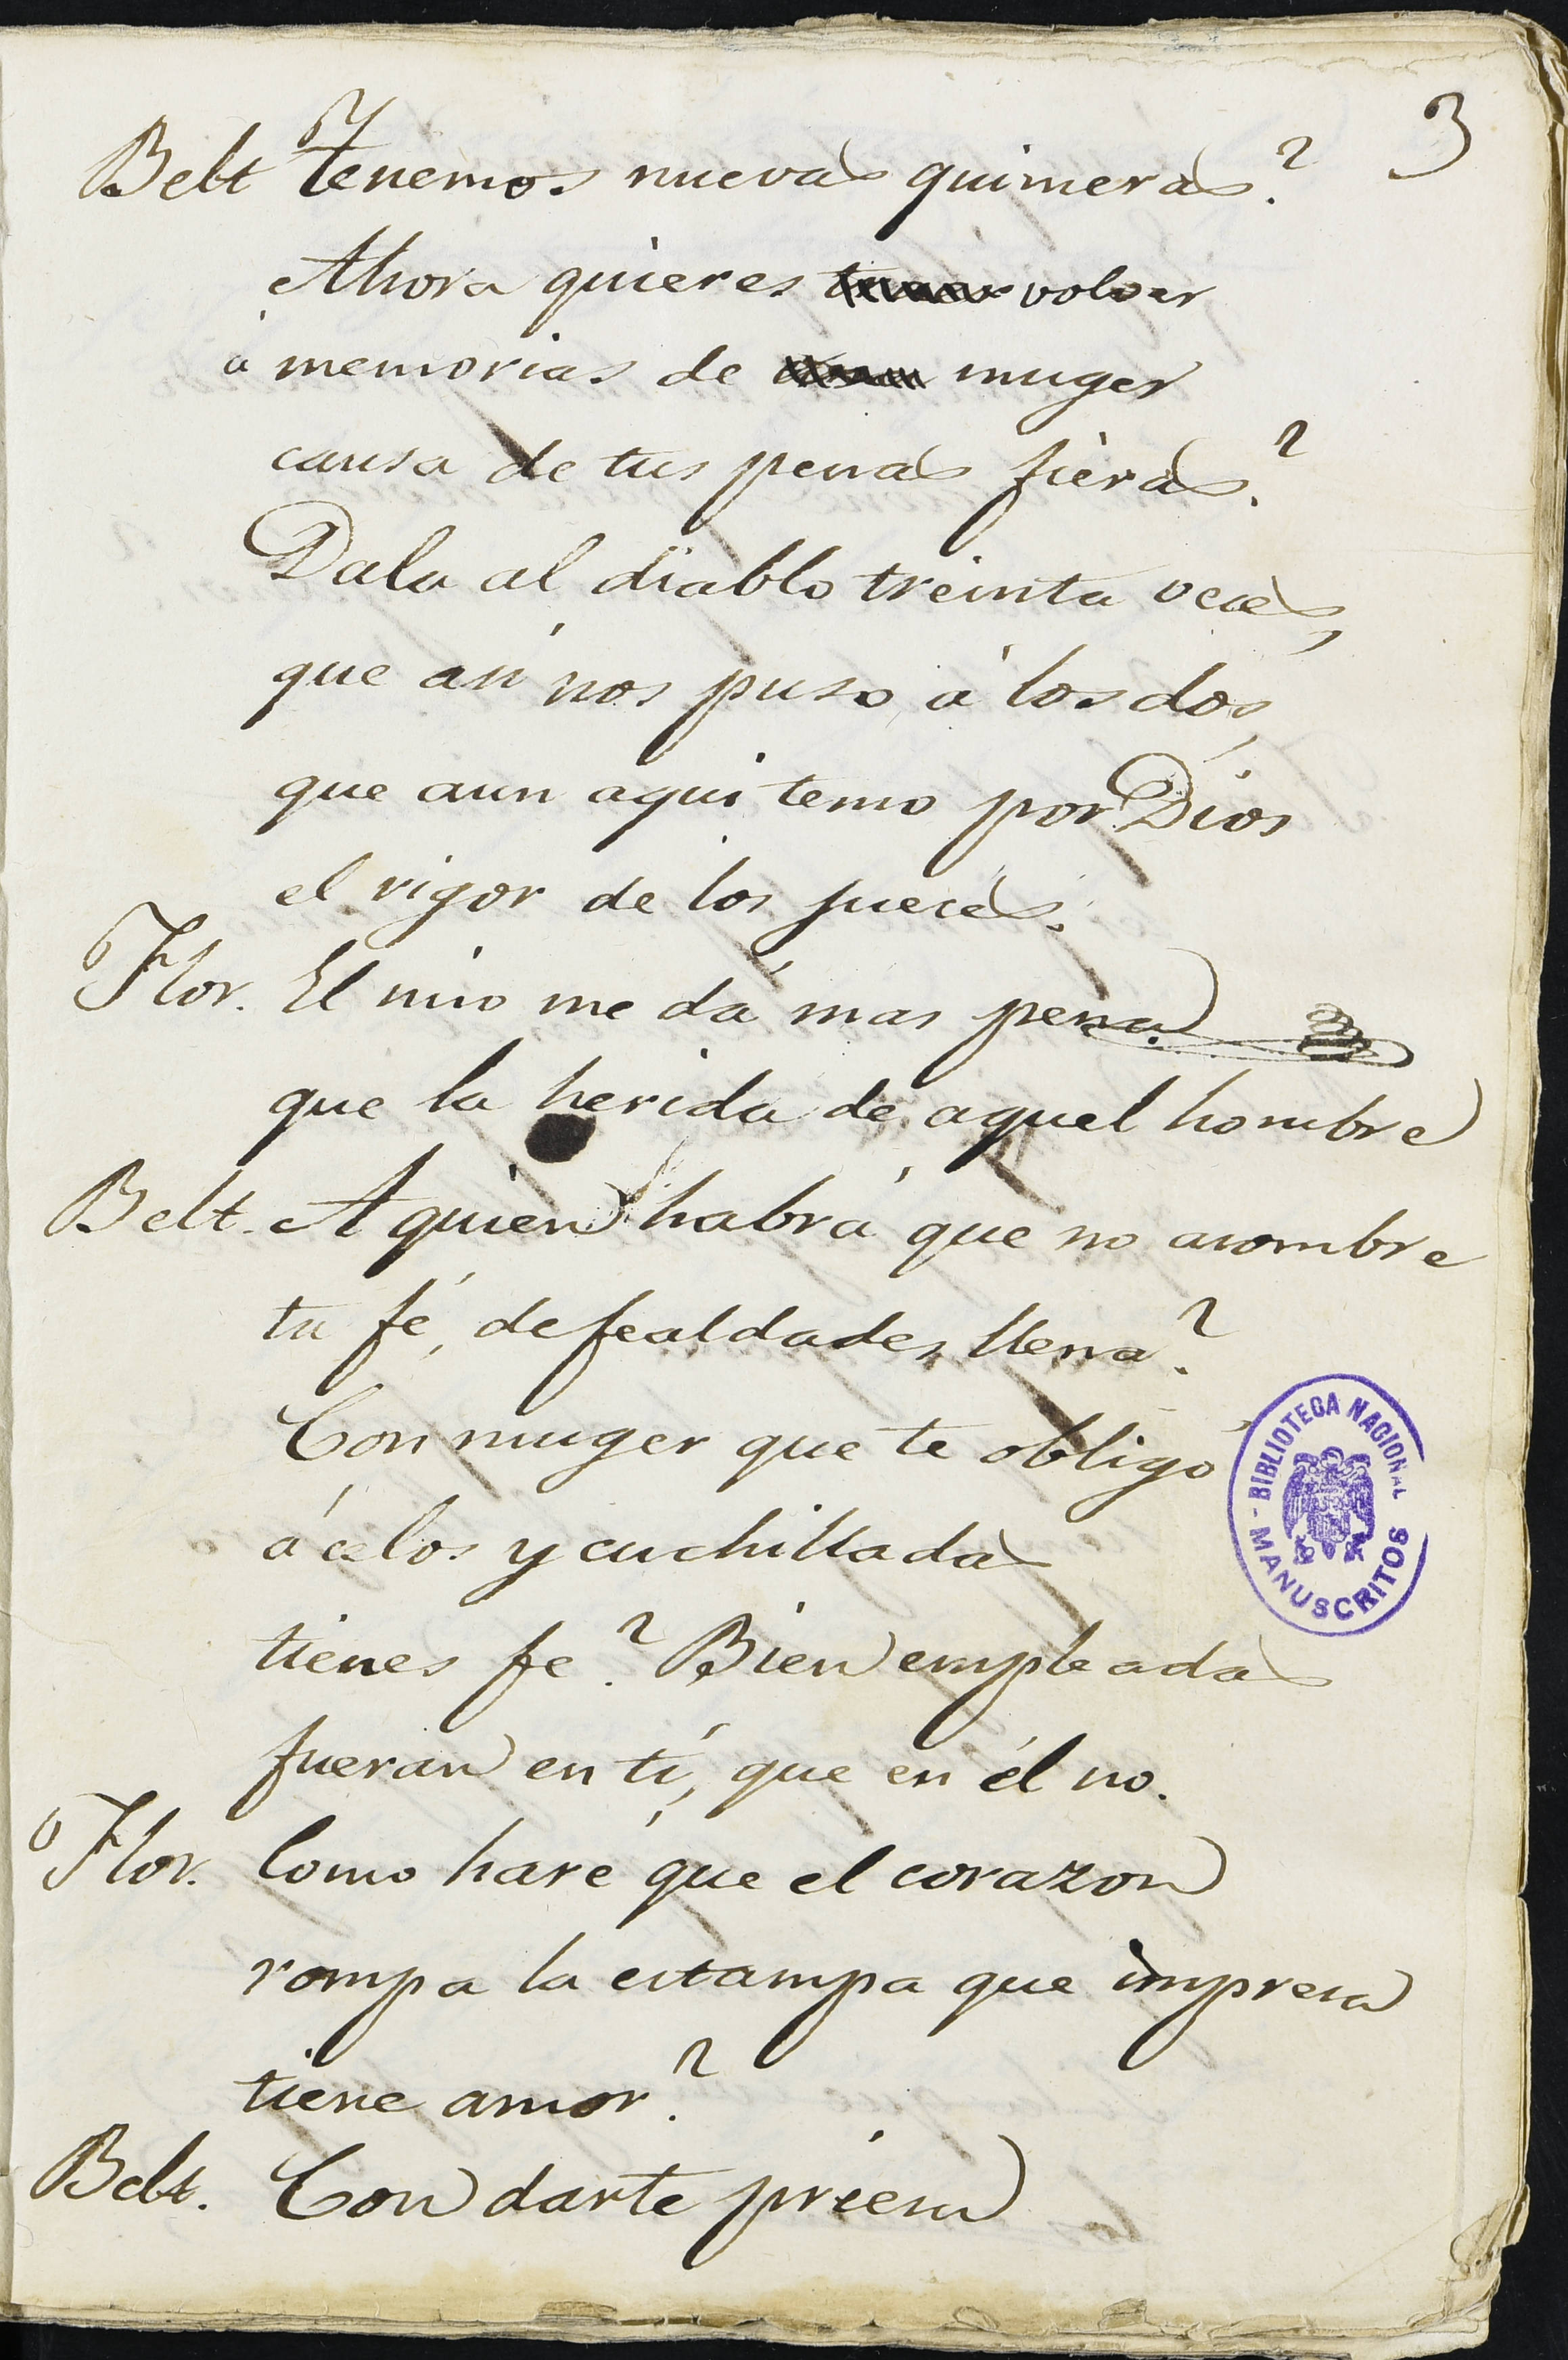 3
Belt Tenemos nuevas quimeras?
Ahora quieres volver
á memorias de muger
causa de tus penas fieras?
Dala al diablo treinta veces,
que asi nos puso á los dos,
que aun aqui temo por Dios
el rigor de los jueces.
Flor. El mio me dá mas pena
que la herida de aquel hombre
Belt. A quien habrá que no asombre
tu fé, de fealdades llena?
Con muger que te obligó
á celos y cuchilladas
tienes fe? Bien empleadas
fueran en ti, que en él no.
Flor. Como haré que el corazon
rompa la estampa que impresa
tiene amor?
Belt. Con darte priesa
BIBLIOTECA NACIONAL
MANUSCRITOS